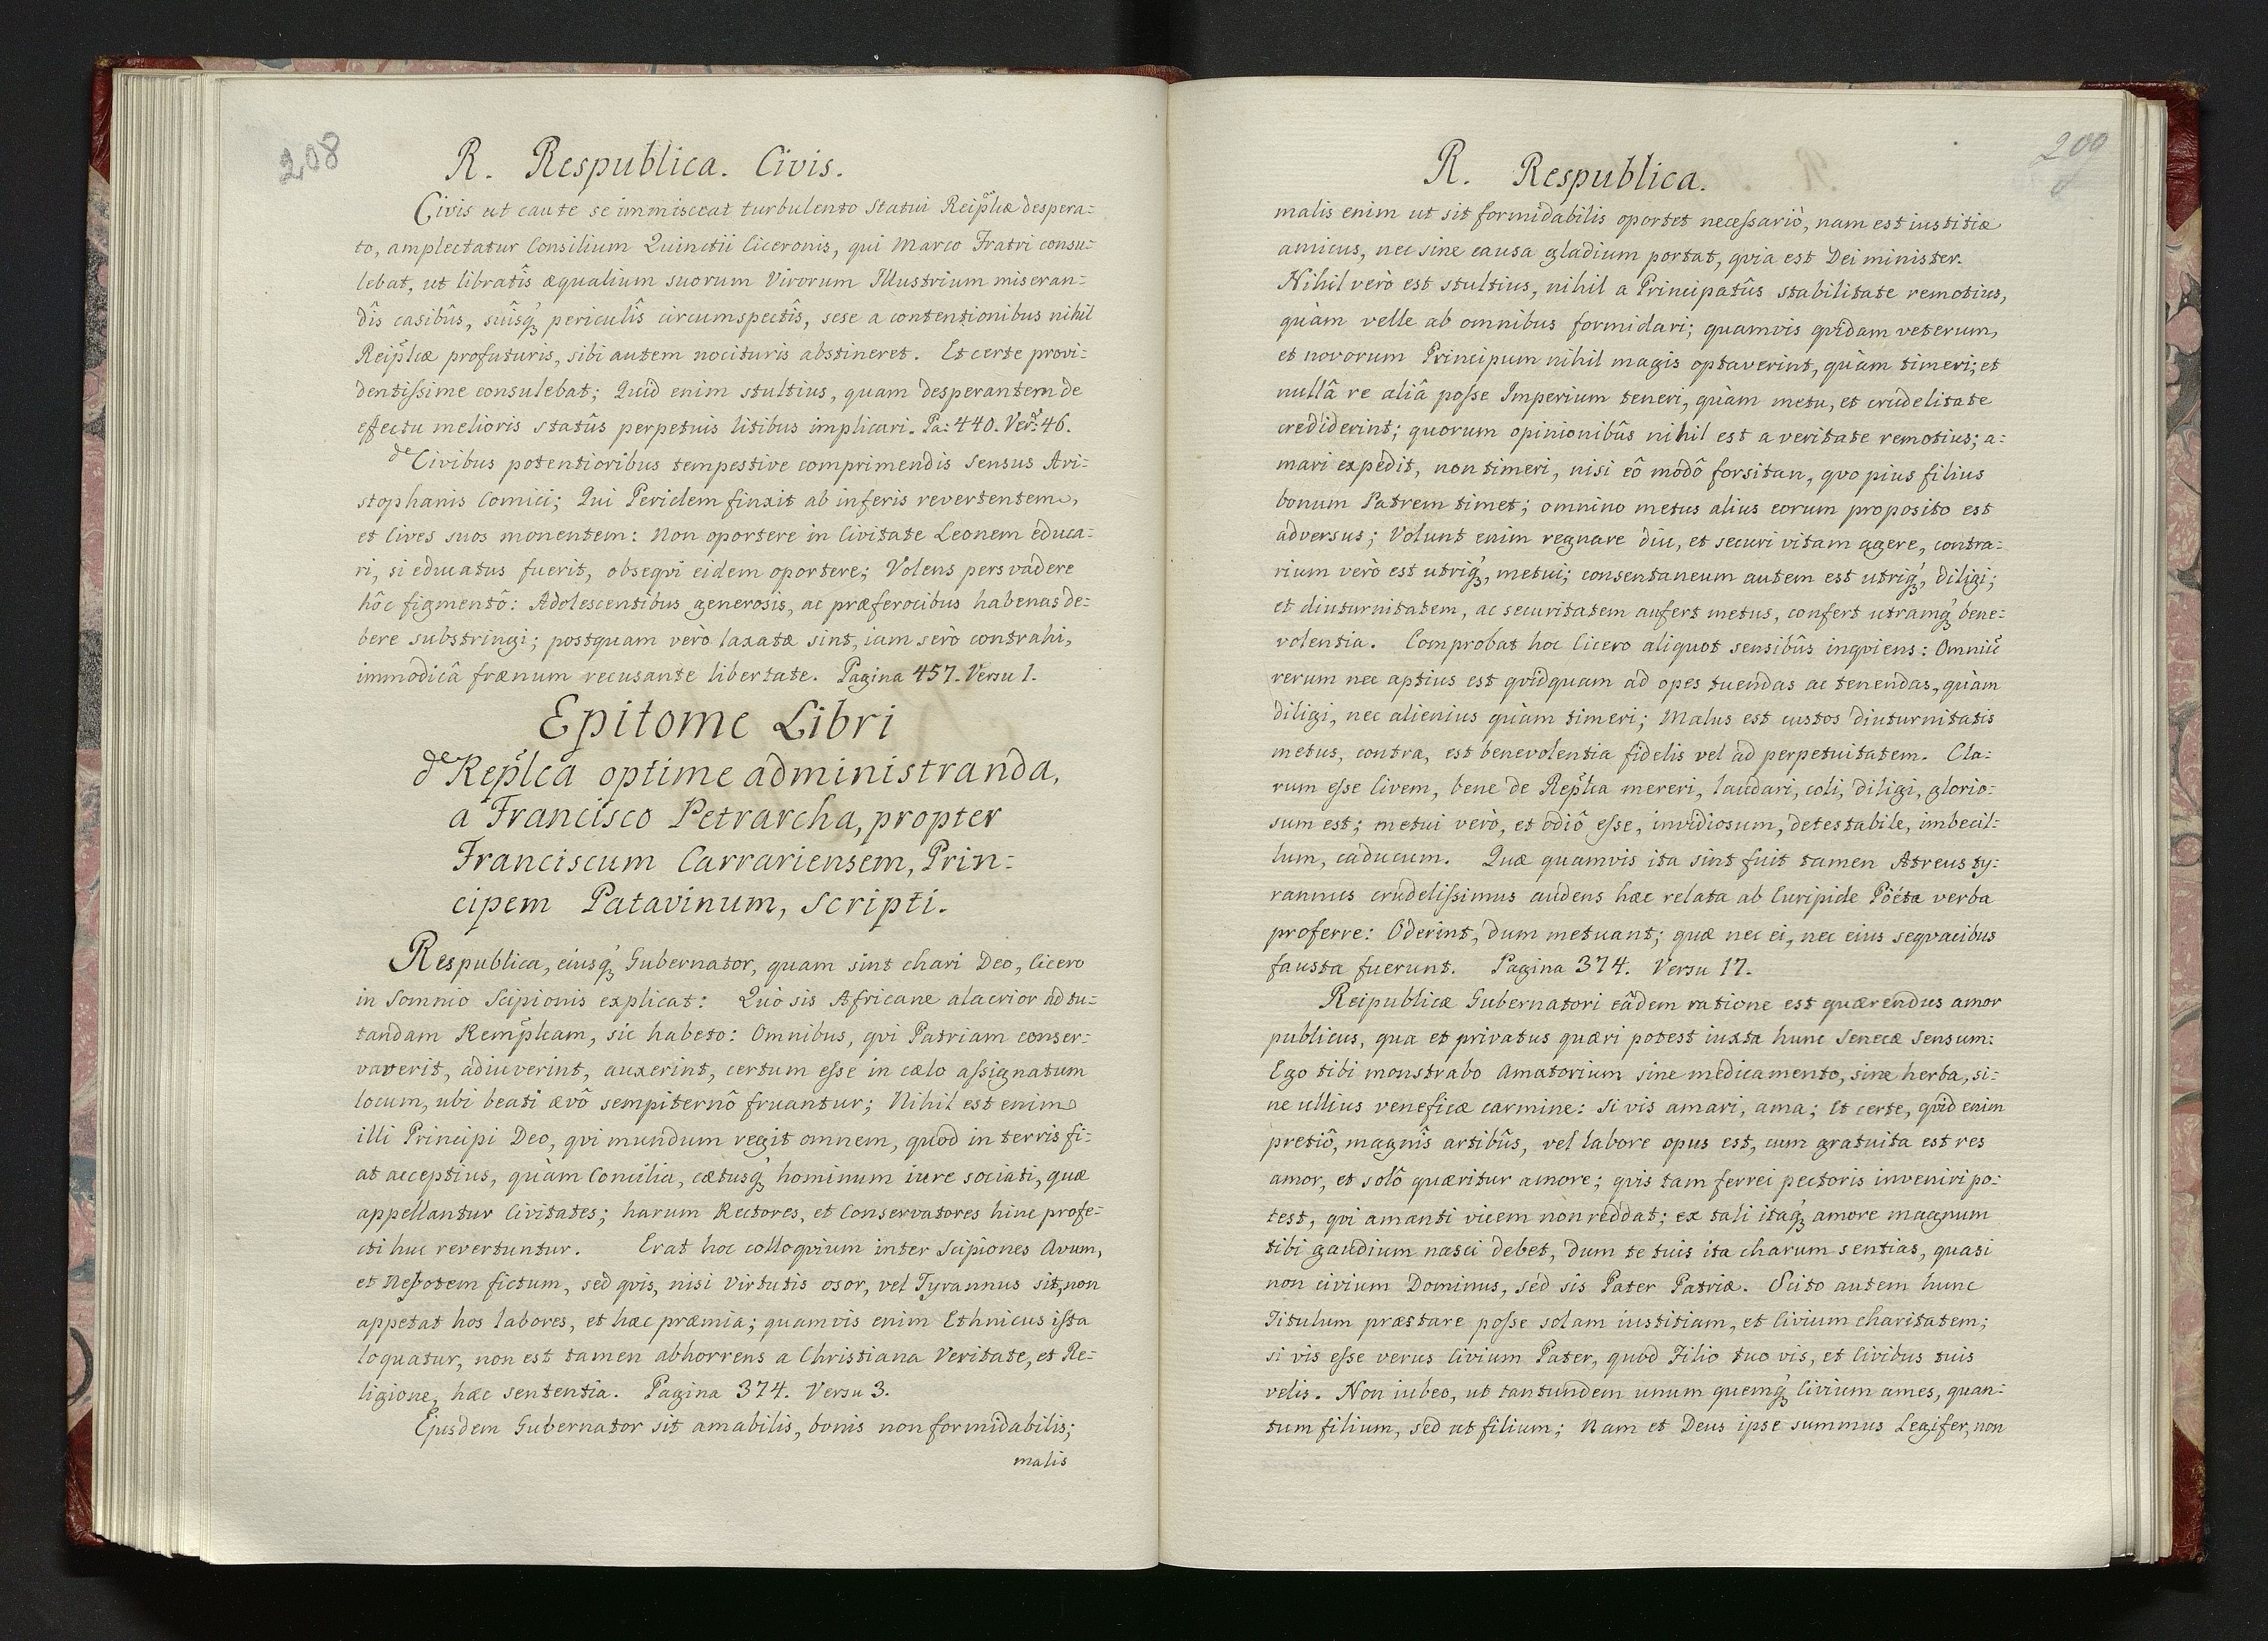 208
R. Respublica. Civis.
Civis ut caute se immisceat turbulento Statui Reip̃licæ despera:
to, amplectatur Consilium Quinctii Ciceronis, qui Marco Fratri consu:
lebat, ut libratîs æqualium suorum Virorum Illustrium miseran:
dîs casibûs, suîsq́ꝫ periculîs circumspectîs, sese a contentionibus nihil
Reip̃licæ profuturis, sibi autem nocituris abstineret. Et certe provi:
dentiſsime consulebat; Quid enim stultius, quam desperantem de
effectu melioris statûs perpetuis litibus implicari. Pa: 440. Ver: 46.
de Civibus potentioribus tempestive comprimendis Sensus Ari:
stophanis Comici; Qui Periclem finxit ab inferis revertentem,
et Cives suos monentem: Non oportere in Civitate Leonem educa:
ri, si educatus fuerit, obseqvi eidem oportere; Volens persvadere
hôc figmentô: Adolescentibus generosis, ac præferocibus habenas de:
bere substringi; postquam verò laxatæ sint, iam serò contrahi,
immodicâ frænum recusante libertate. Pagina 457. Versu 1.
Epitome Libri
de Rep̃lca optime administranda,
a Francisco Petrarcha, propter
Franciscum Carrariensem, Prin:
cipem Patavinum, Scripti.
Respublica, eiusq́ꝫ Gubernator, quam sint chari Deo, Cicero
in Somnio Scipionis explicat: Quò sis Africane alacrior ad tu:
tandam Remp̃lcam, sic habeto: Omnibus, qvi Patriam conser:
vaverit, adiuverint, auxerint, certum eſse in cælo aſsignatum
locum, ubi beati ævô sempiternô fruantur; Nihil est enim
illi Principi Deo, qvi mundum regit omnem, quod in terris fi:
at acceptius, quàm Concilia, cætusq́ꝫ hominum iure sociati, quæ
appellantur Civitates; harum Rectores, et Conservatores hinc profe:
cti huc revertuntur. Erat hoc colloqvium inter Scipiones Avum,
et Nepotem fictum, sed qvis, nisi Virtutis osor, vel Tyrannus sit, non
appetat hos labores, et hæc præmia; quamvis enim Ethnicus ista
loquatur, non est tamen abhorrens a Christiana Veritate, et Re:
ligione, hæc sententia. Pagina 374. Versu 3.
Ejusdem Gubernator sit amabilis, bonis non formidabilis;
malis
209
R. Respublica.
malis enim ut sit formidabilis oportet neceſsariò, nam est iustitiæ
amicus, nec sine causa gladium portat, qvia est Dei minister.
Nihil verò est stultius, nihil a Principatûs stabilitate remotius,
quàm velle ab omnibus formidari; quamvis qvidam veterum,
et novorum Principum nihil magis optaverint, quàm timeri; et
nullâ re aliâ poſse Imperium teneri, quàm metu, et crudelitate
crediderint; quorum opinionibûs nihil est a veritate remotius; a:
mari expedit, non timeri, nisi eô modô forsitan, qvo pius filius
bonum Patrem timet; omnino metus alius eorum proposito est
adversus; Volunt enim regnare diu, et securi vitam agere, contra:
rium verò est utriq́ꝫ, metui; consentaneum autem est utriq́ꝫ, diligi;
et diuturnitatem, ac securitatem aufert metus, confert utramq́ꝫ bene:
volentia. Comprobat hoc Cicero aliquot sensibûs inqviens: Omniũ
rerum nec aptius est qvidquam ad opes tuendas ac tenendas, quàm
diligi, nec alienius quàm timeri; Malus est custos diuturnitatis
metus, contra, est benevolentia fidelis vel ad perpetuitatem. Cla:
rum eſse Civem, bene de Rep̃lca mereri, laudari, coli, diligi, glorio:
sum est; metui verò, et odiô eſse, invidiosum, detestabile, imbecil:
lum, caducum. Quæ quamvis ita sint fuit tamen Atreus ty:
rannus crudeliſsimus audens hæc relata ab Euripide Poëta verba
proferre: Oderint, dum metuant; quæ nec ei, nec eius seqvacibus
fausta fuerunt. Pagina 374. Versu 17.
Reipublicæ Gubernatori eâdem ratione est quærendus amor
publicus, qua et privatus quæri potest iuxta hunc Senecæ Sensum:
Ego tibi monstrabo Amatorium sine medicamento, sine herba, si:
ne ullius veneficæ carmine: Si vis amari, ama; Et certe, qvid enim
pretiô, magnîs artibûs, vel labore opus est, cum gratuita est res
amor, et solô quæritur amore; qvis tam ferrei pectoris inveniri po:
test, qvi amanti vicem non reddat; ex tali itaq́ꝫ amore magnum
tibi gaudium nasci debet, dum te tuis ita charum sentias, quasi
non civium Dominus, sed sis Pater Patriæ. Scito autem hunc
Titulum præstare poſse solam iustitiam, et Civium charitatem;
si vis eſse verus Civium Pater, quod Filio tuo vis, et Civibus tuis
velis. Non iubeo, ut tantundem unum quemq́ꝫ Civium ames, quan:
tum filium, sed ut filium; Nam et Deus ipse summus Legifer, non